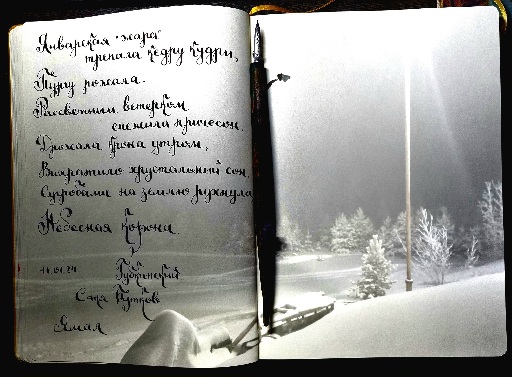 Январская жара
трепала кедру кудри,
Пургу рожала.
Рассветным ветерком
снежила причесон.
Дрожала крона утром,
Вихратило хрустальный сон,
Сугробами на землю рухнула
Небесная корона
г
Губкинский
Сажа Путков
Ямал